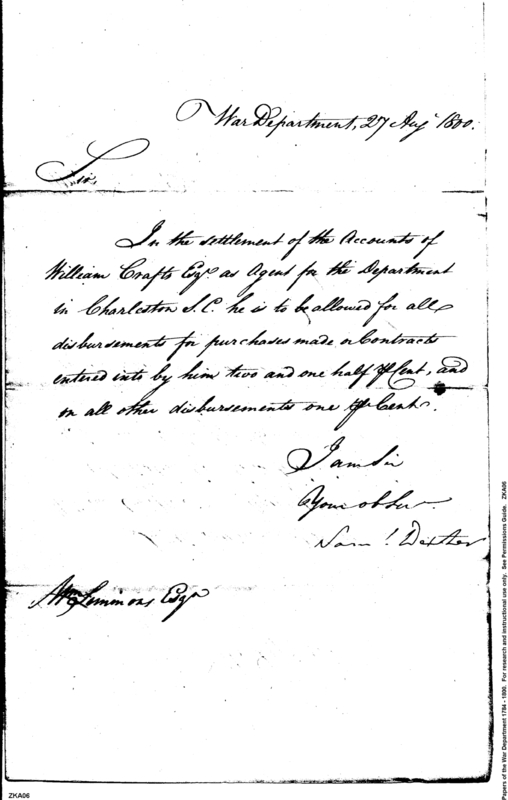 War Department, 27 Augt 1800.
Sir,
In the settlement of the Accounts of
William Crafts Esqr. as Agent for the Department
in Charleston S.C. he is to be allowed for all
disbursements for purchases made or Contracts
entered into by him two and one half ⅌ Cent, and
on all other disbursements one ⅌ Cent.
I am Sir
Your obt Ser
Saml. Dexter
Wm Simmons Esqr
Papers of the War Department 1784 - 1800. For research and instructional use only. See Permissions Guide. ZKA06
ZKA06